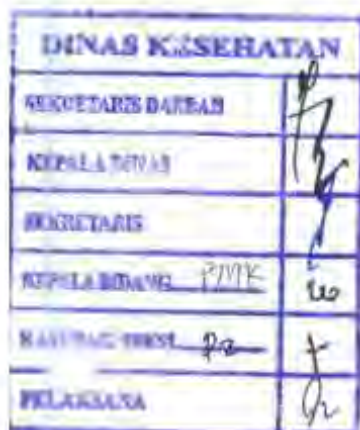 DINAS KESEHATAN
SEKRETARIS DAERAH
KEPALA DINAS
SEKRETARIS
KEPALA BIDANG PMK
PELAKSANA